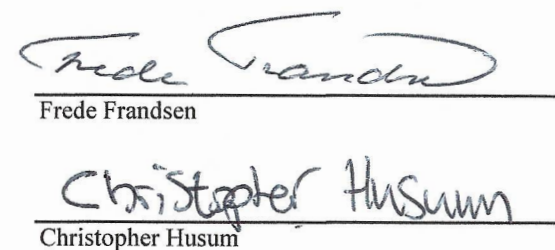 Frede Frandsen
Frede Frandsen
Christopher Husum
Christopher Husum